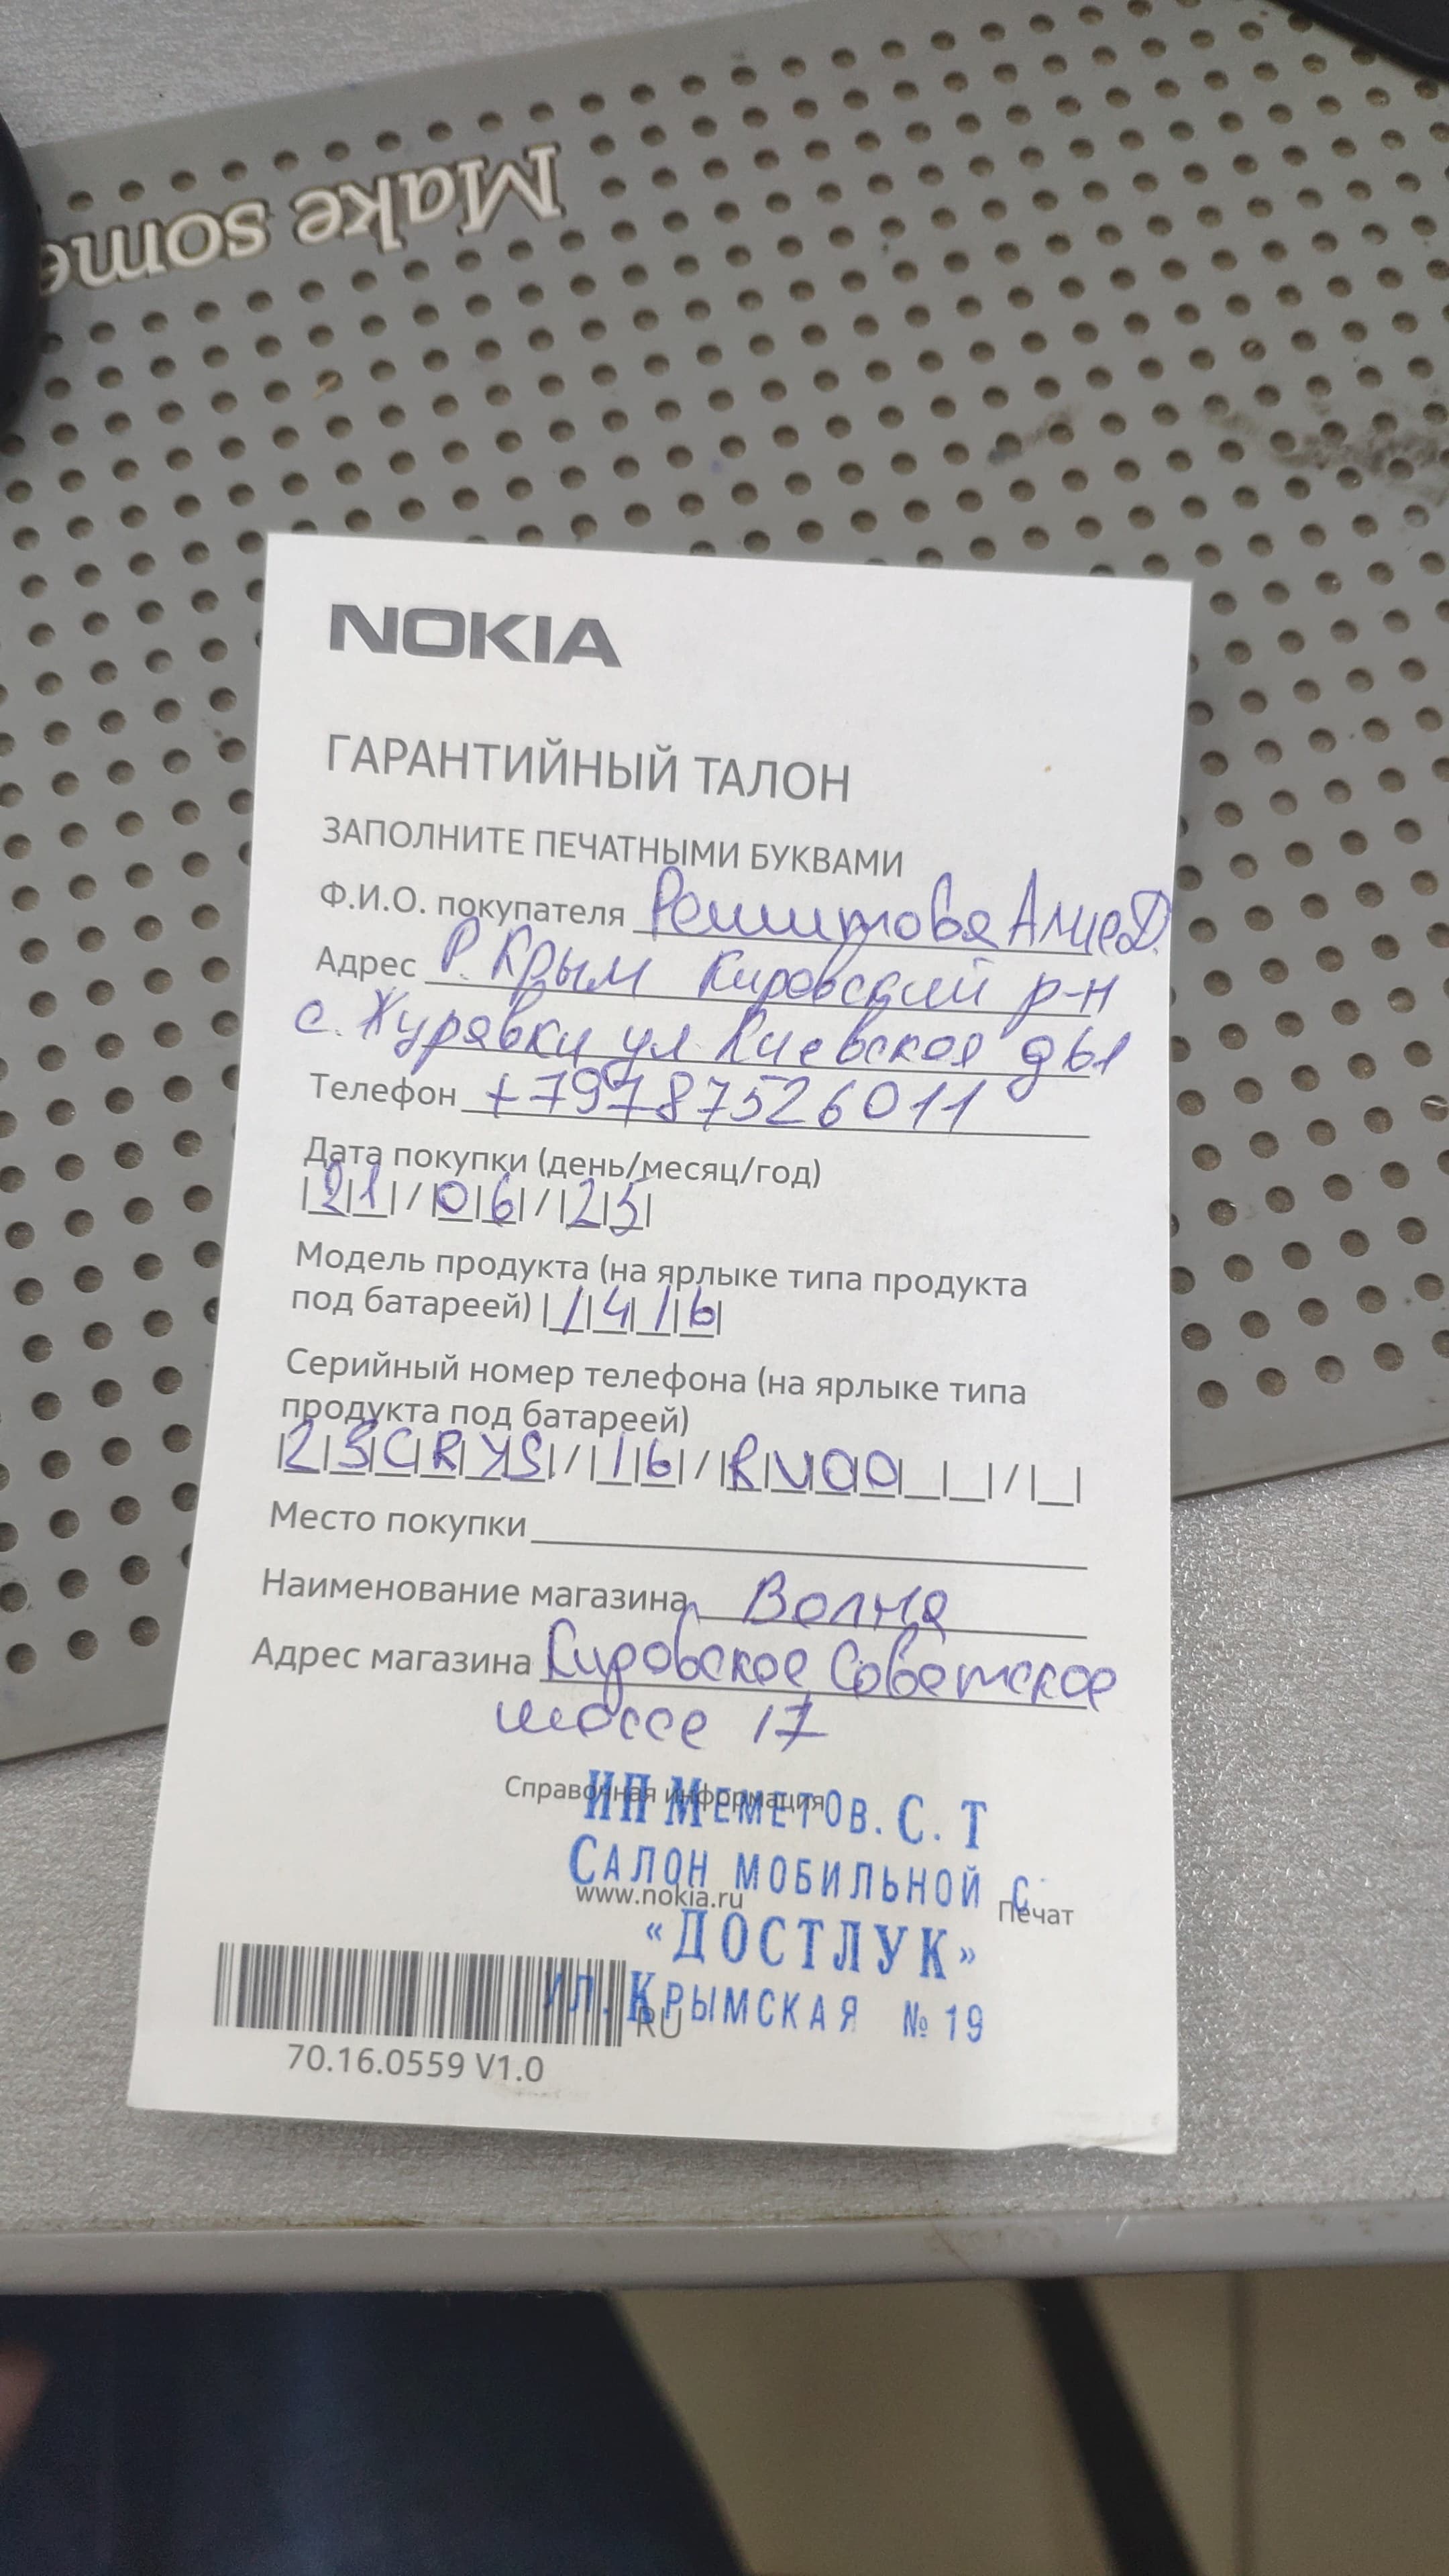 Make some
NOKIA
ГАРАНТИЙНЫЙ ТАЛОН
ЗАПОЛНИТЕ ПЕЧАТНЫМИ БУКВАМИ
Ф.И.О. покупателя Решитова Алие Д.
Адрес Р. Крым Кировский р-н
с. Журавки ул Киевская д61
Телефон +79787526011
Дата покупки (день/месяц/год)
|2|1| / |0|6| / |2|5|
Модель продукта (на ярлыке типа продукта
под батареей) |1|4|1|6|
Серийный номер телефона (на ярлыке типа
продукта под батареей)
|2|5|C|R|Y|S| / |1|6| / |R|U|0|0|_|_| / |_|
Место покупки
Наименование магазина Волна
Адрес магазина Кировское Советское
шоссе 17
Справочная информация
ИП Меметов. С. Т
Салон мобильной с
www.nokia.ru
Печат
«ДОСТЛУК»
ул. Крымская № 19
RU
70.16.0559 V1.0